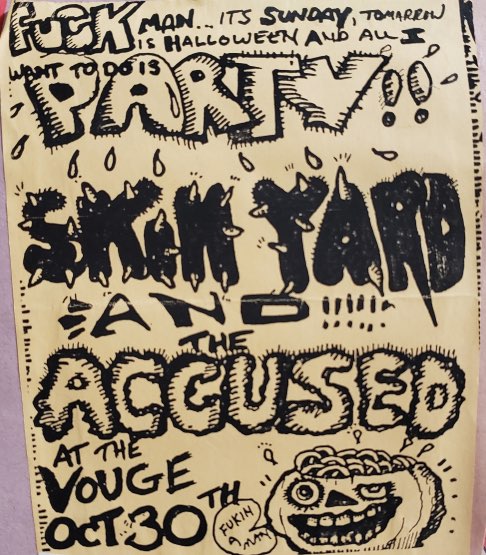 FUCK MAN... ITS SUNDAY, TOMARROW
IS HALLOWEEN AND ALL I
WANT TO DO IS
PARTY!!
SKIN YARD
AND
THE
ACCUSED
AT THE
VOUGE
OCT 30TH
FUKIN
A
MAN